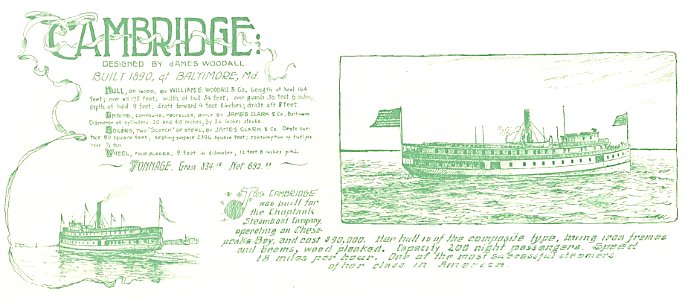 CAMBRIDGE:
DESIGNED BY JAMES WOODALL
BUILT 1890, at BALTIMORE, Md.
HULL, OF WOOD, BY WILLIAM E. WOODALL & Co. Length of keel 164
feet; over all 175 feet, width of hull 34 feet; over guards 55 feet 6 inches,
depth of hold 9 feet, draft forward 4 feet 6 inches; draft aft 8 feet.
ENGINE, COMPOUND, PROPELLER, BUILT BY JAMES CLARK & Co. Baltimore
Diameter of cylinders 20 and 40 inches, by 28 inches stroke.
BOILERS, TWO "SCOTCH" OF STEEL, BY JAMES CLARK & Co. Grate sur-
face 80 square feet, heating surface square feet; consumption of fuel per
hour ton
WHEEL, FOUR BLADED, 9 feet in diameter, 13 feet 6 inches pitch.
TONNAGE. Gross 834 Net 692
The CAMBRIDGE
was built for
the Choptank
Steamboat Company
operating on Chese-
peake Bay, and cost $90,000. Her hull is of the composite type, having iron frames
and beams, wood planked. Capacity 200 night passengers. Speed
18 miles per hour. One of the most successful steamers
of her class in America